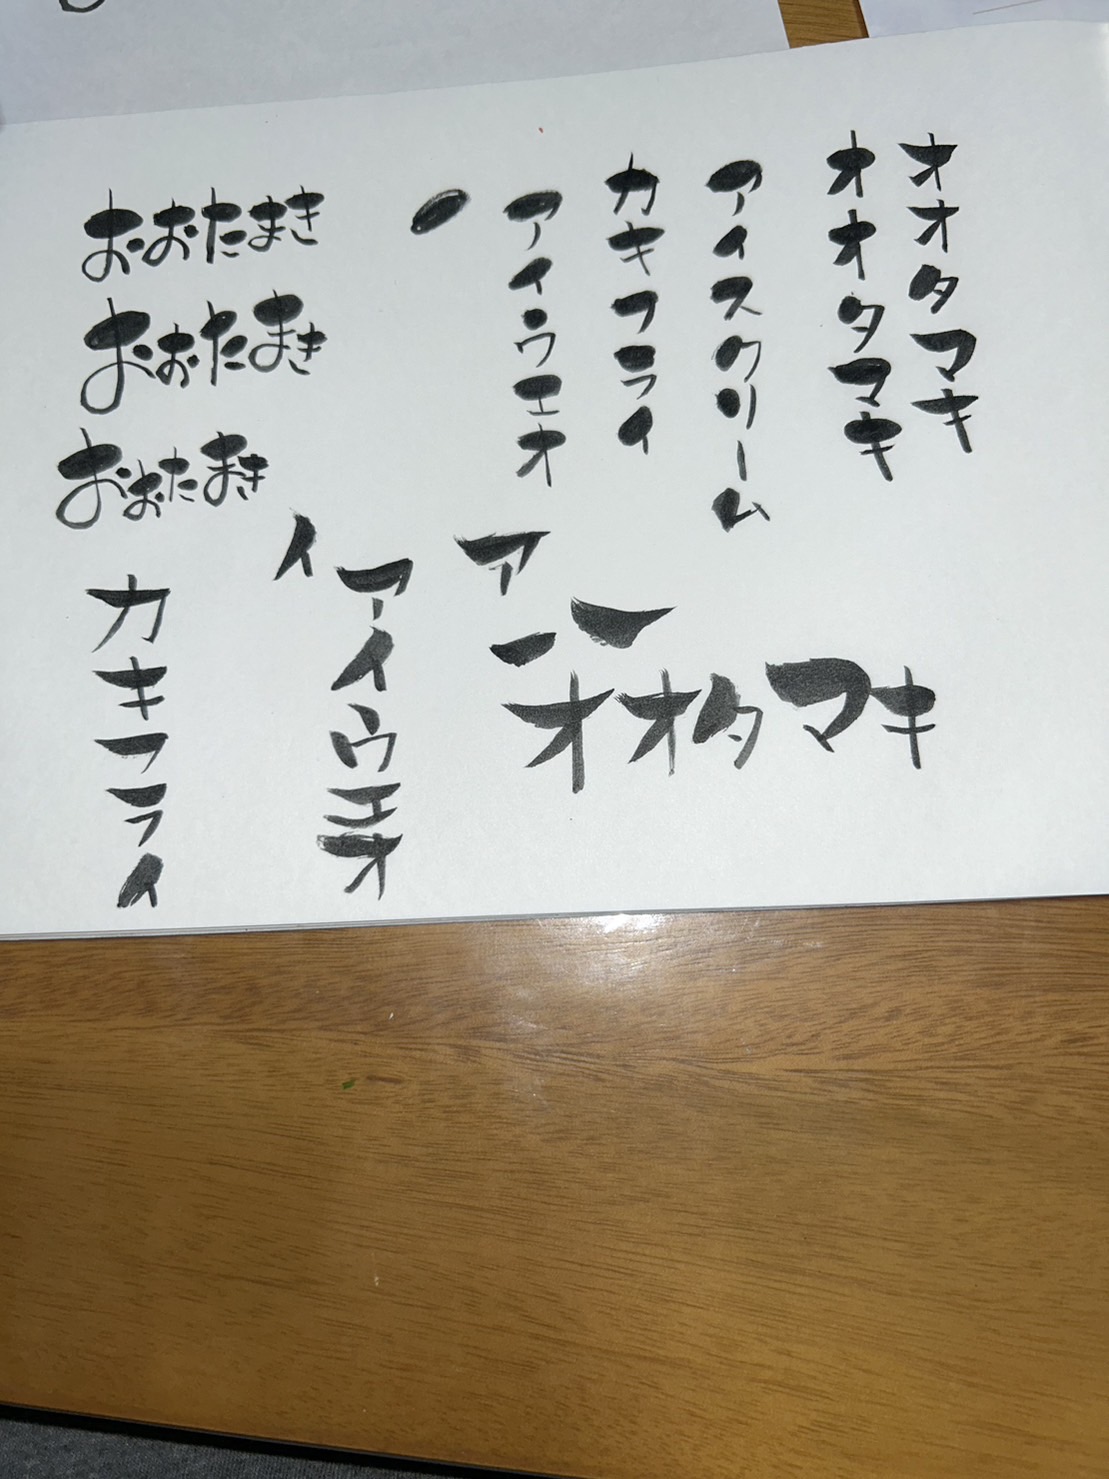 オオタマキ
オオタマキ
アイスクリーム
カキフライ
アイウエオ
おおたまき
おおたまき
おおたまき
ア
オオタマキ
イ
アイウエオ
カキフライ